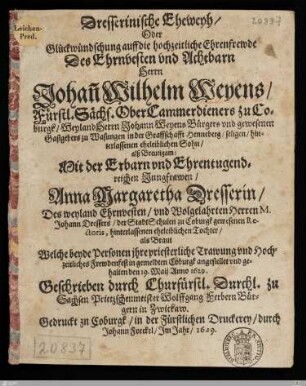 20837
Leichen-
Pred.
Dresserinische Eheweyh/
Oder
Glückwündschung auff die hochzeitliche Ehrenfrewde
Des Ehrnvesten vnd Achtbarn
Herrn
Johañ Wilhelm Weyens/
Fürstl. Sächs. Ober Cammerdieners zu Co-
burgk/ Weyland Herrn Johann Weyens Bürgers vnd gewesenen
Gastgebers zu Wasungen in der Graffschafft Henneberg/ seligen/ hin-
terlassenen eheleiblichen Sohn/
als Breutigam:
Mit der Erbarn vnd Ehrentugend-
reichen Jungfrawen/
Anna Margaretha Dresserin/
Des weyland Ehrnvesten/ vnd Wolgelahrten Herren M.
Johann Dressers/ der Stadt Schulen zu Coburgk gewesenen Re-
ctoris, hinterlassenen eheleiblichen Tochter/
als Braut
Welche beyde Personen ihre priesterliche Trawung vnd Hoch-
zeitliches Frewdenfest in gemeldten Coburgk angestellet vnd ge-
halten den 19. Maii Anno 1629.
Geschrieben durch Churfürstl. Durchl. zu
Sachsen Prietzschenmeister Wolffgang Ferbern Bür-
gern in Zwickaw.
Gedruckt zu Coburgk/ in der Fürstlichen Druckerey/ durch
Johann Forckel/ Im Jahr/ 1629.
20837